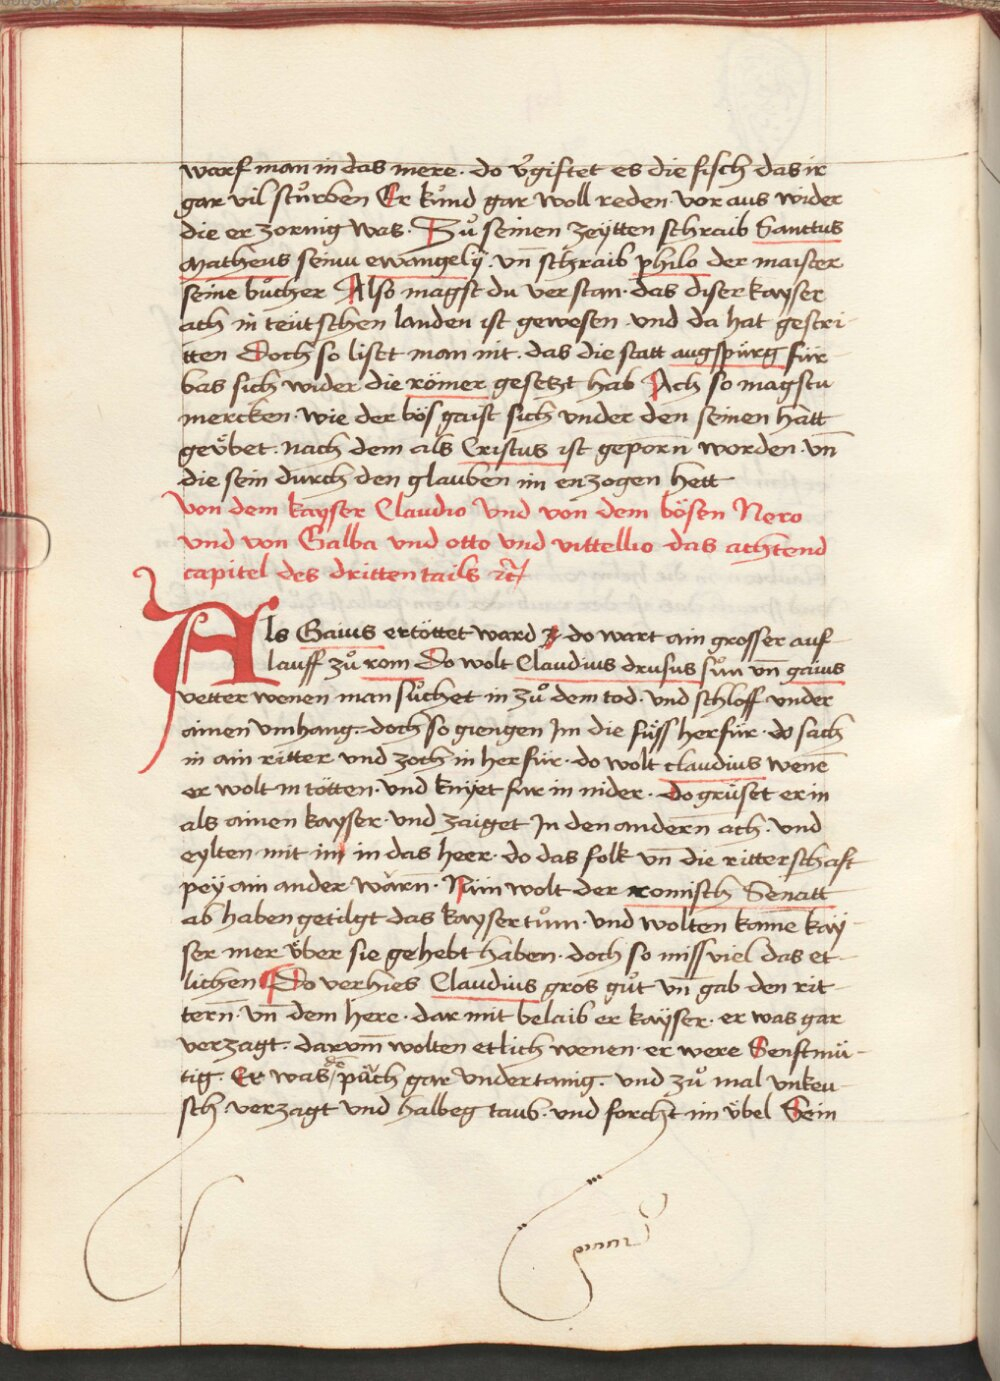 warf man in das mere · do v̉giftet es die fisch das ir
gar vil stůrben Er kůnd gar woll reden · vor aus wider
die er zornig was · Zů seinen zeÿtten schraib Sanctus
Matheus seinu ewangelÿ · vn̄ schraib philo der maister
seine bůcher Also magst du verstan · das diser kayser
ach in teütschen landen ist gewesen · und da hat gestri-
tten Doch so list man nit · das die statt augspürg für
bas sich wider die römer gesetzt hab Ach so magstu
mercken · wie der bös gaist sich vnder den seinen hatt
geůbet · nach dem als Cristus ist geporn̄ worden · vn̄
die sein durch den glauben im enzogen hett
Von dem kayser Claudio Vnd von dem bösen Nero
vnd von Galba vnd otto vnd vittellio das achtend
capitel des dritten tails ꝛc̄
Als Gaius ertöttet ward do wart ain grosser auf
lauff zů rom Do wolt Claudius drusus sůn vn̄ gaius
vetter wenen man sůchet in zů dem tod · vnd schloff vnder
ainen vmhang · doch so giengen Im die füss herfür · do sach
in ain ritter vnd zoch in herfür · do wolt claudius wenē
er wolt in tötten · vnd knÿet fur in nider · do grüset er in
als ainen kayser · vnd zaiget In den andern̄ ach · vnd
eylten mit im in das heer · do das folk vn̄ die ritterschaft
peÿ ain ander wärn̄ · Nün wolt der romisch Senatt
ab haben getilgt das kaysertům · vnd wolten kainē kaÿ-
ser mer v̈ber sie gehebt haben · doch so miss viel das et-
lichen Do verhies Claudius gros gůt vn̄ gab den rit-
tern̄ · vn̄ dem here · dar mit belaib er kaÿser · er was gar
verzagt · darvm̄ wolten etlich wenen · er were Senftmü-
tig · Er was päch gar vndertanig · vnd zů mal vnkeu-
sch · verzagt vnd halbeg taub · vnd forcht im v̈bel Sein